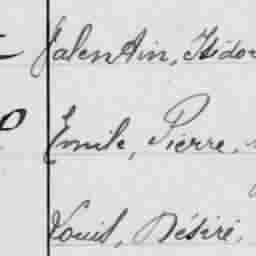 Valentin, Isidor
Emile, Pierre,
Louis, Désiré,